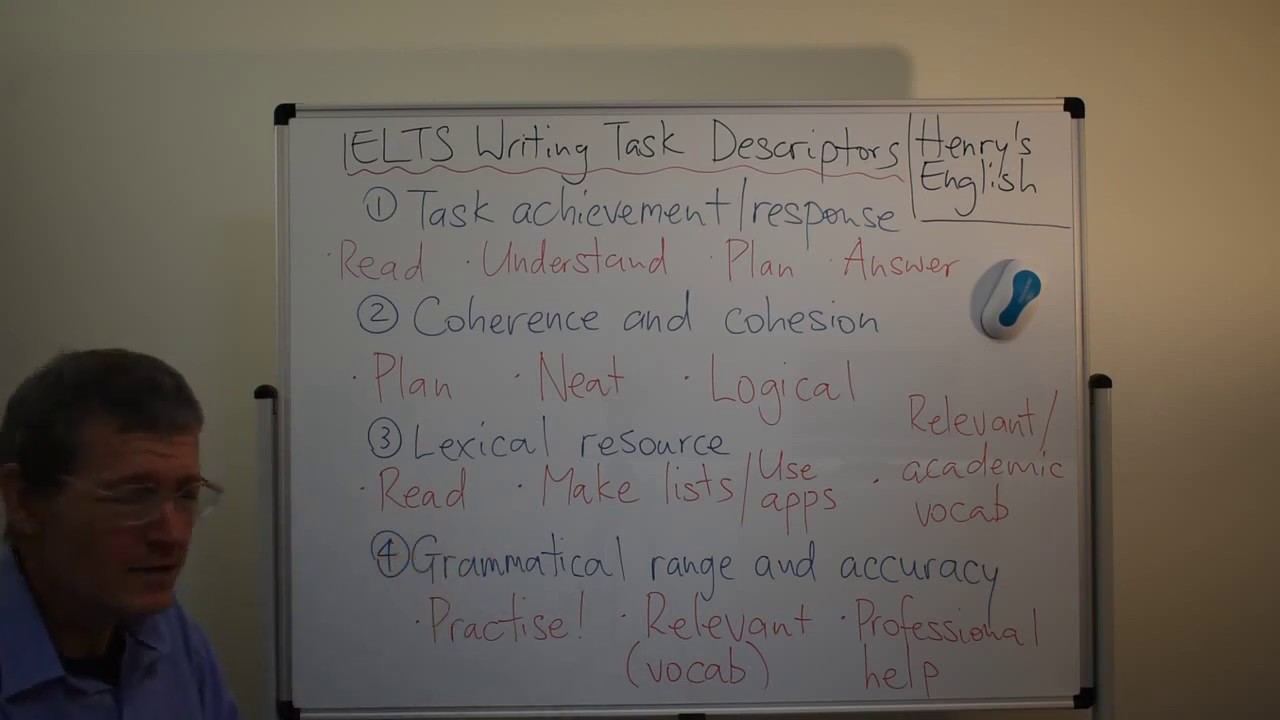 IELTS Writing Task Descriptors
Henry's
English
① Task achievement/response
· Read · Understand · Plan · Answer
② Coherence and cohesion
· Plan · Neat · Logical
③ Lexical resource
· Read · Make lists/Use apps
· Relevant/
academic
vocab
④ Grammatical range and accuracy
· Practise! · Relevant (vocab) · Professional help